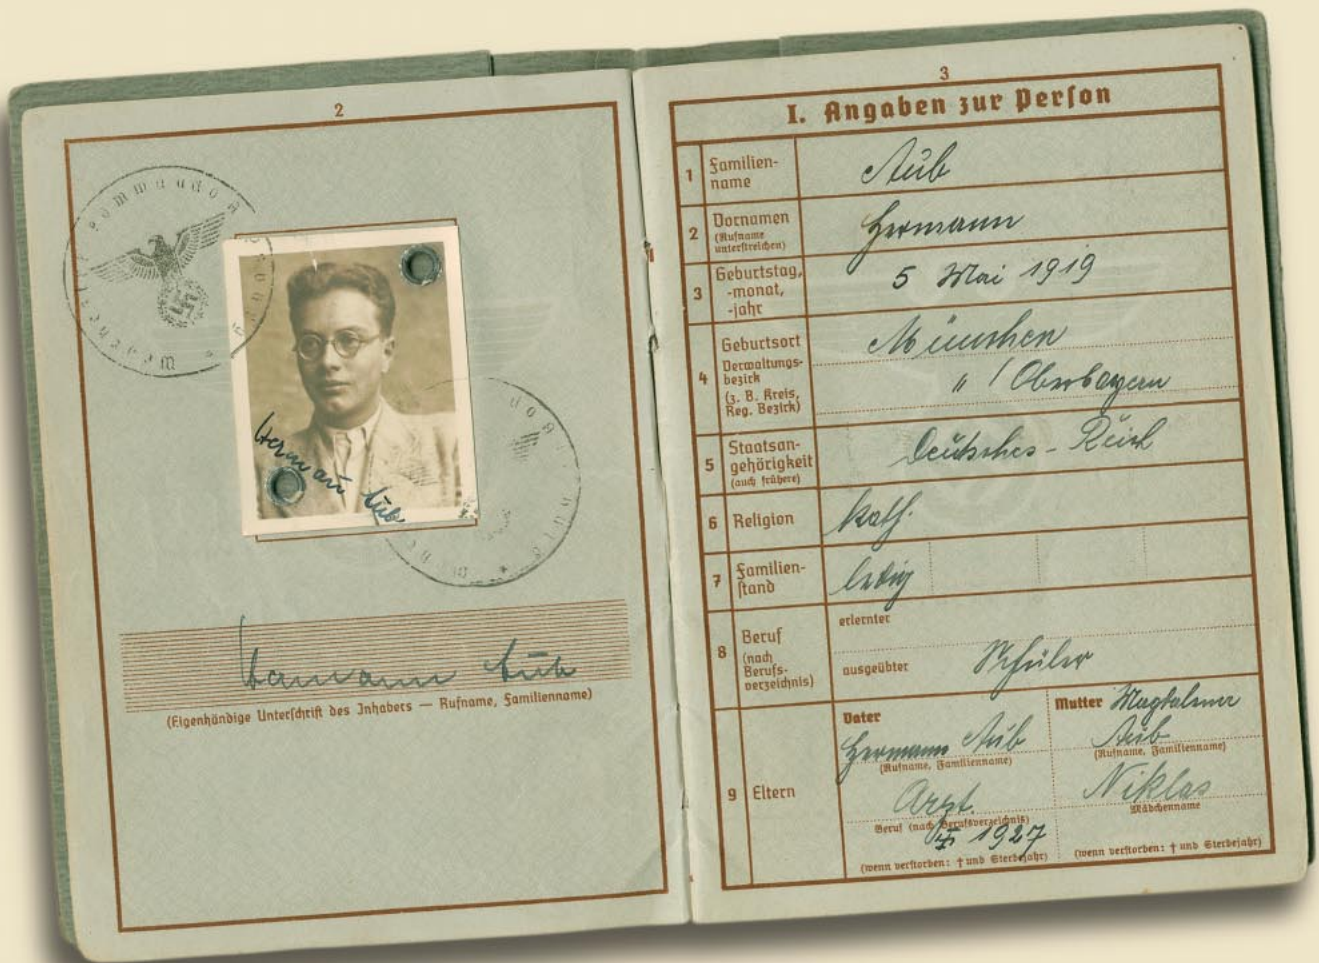 2
Wehrbezirkskommando
Hermann Aub
Hermann Aub
(Eigenhändige Unterschrift des Inhabers — Rufname, Familienname)
3
I. Angaben zur Person
1 Familien-
name
Aub
2 Vornamen
(Rufname
unterstreichen)
Hermann
3 Geburtstag,
-monat,
-jahr
5 Mai 1919
4 Geburtsort
Verwaltungs-
bezirk
(z. B. Kreis,
Reg. Bezirk)
München
" / Oberbayern
5 Staatsan-
gehörigkeit
(auch frühere)
Deutsches - Reich
6 Religion
kath.
7 Familien-
stand
ledig
8 Beruf
(nach
Berufs-
verzeichnis)
erlernter
ausgeübter Schüler
9 Eltern
Vater
Hermann Aub
(Rufname, Familienname)
Arzt.
Beruf (nach Berufsverzeichnis)
† 1927
(wenn verstorben: † und Sterbejahr)
Mutter Magdalena
Aub
(Rufname, Familienname)
Niklas
Mädchenname
(wenn verstorben: † und Sterbejahr)